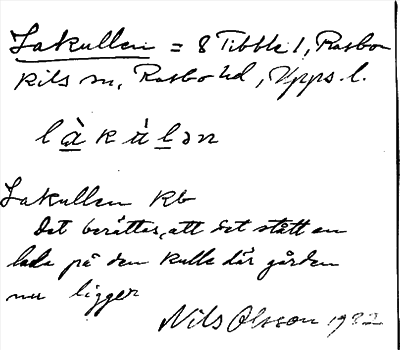 Lakullen = 8 Tibble 1, Rasbo
Kils sn, Rasbo hd, Upps. l.
l à k ù l ə n
Lakullen Kb
Det berättas, att det stått en
lada på den kulle där gården
nu ligger
Nils Olsson 1932